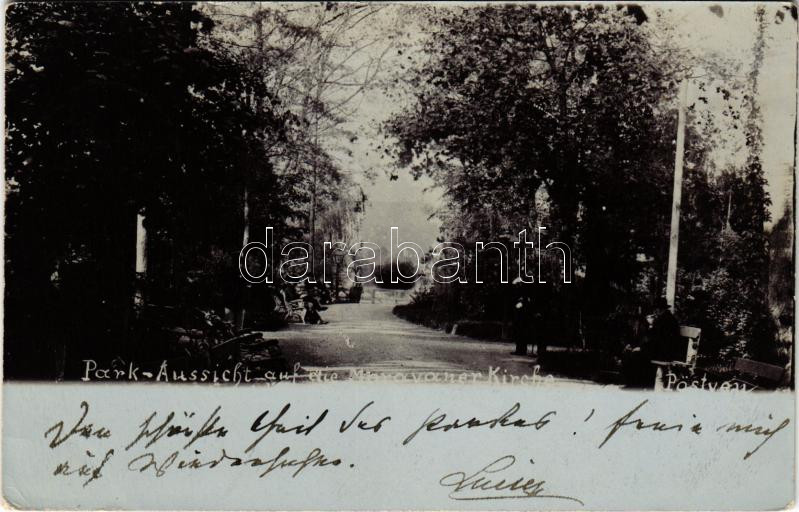 darabanth
Park-Aussicht auf die Moravaner Kirche Pöstyén
Den schönsten Theil des Parkes! freue mich
auf Wiedersehen.